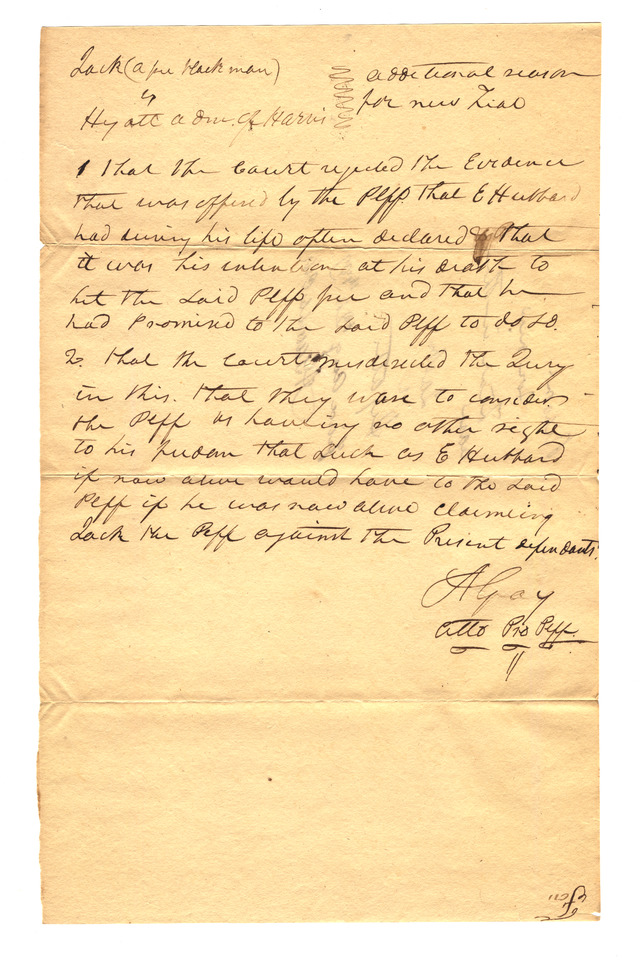 Jack (a free black man)
vs
Hyatt adm. of Harris
additional reason
for new Trial
1 That the Court rejected the Evidence
that was offered by the Plff. that E Hubbard
had during his life often declared that
it was his intention at his death to
set the said Plff free and that he
had Promised to the said Plff to do so.
2. that the Court misdirected the Jury
in this. that they ware to consider
the Plff as having no other right
to his freedom that Such as E Hubbard
if now alive would have to the said
Plff if he was now alive claimeing
Jack the Plff against the Present defendants.
A Gray
Atto Pro Plff.